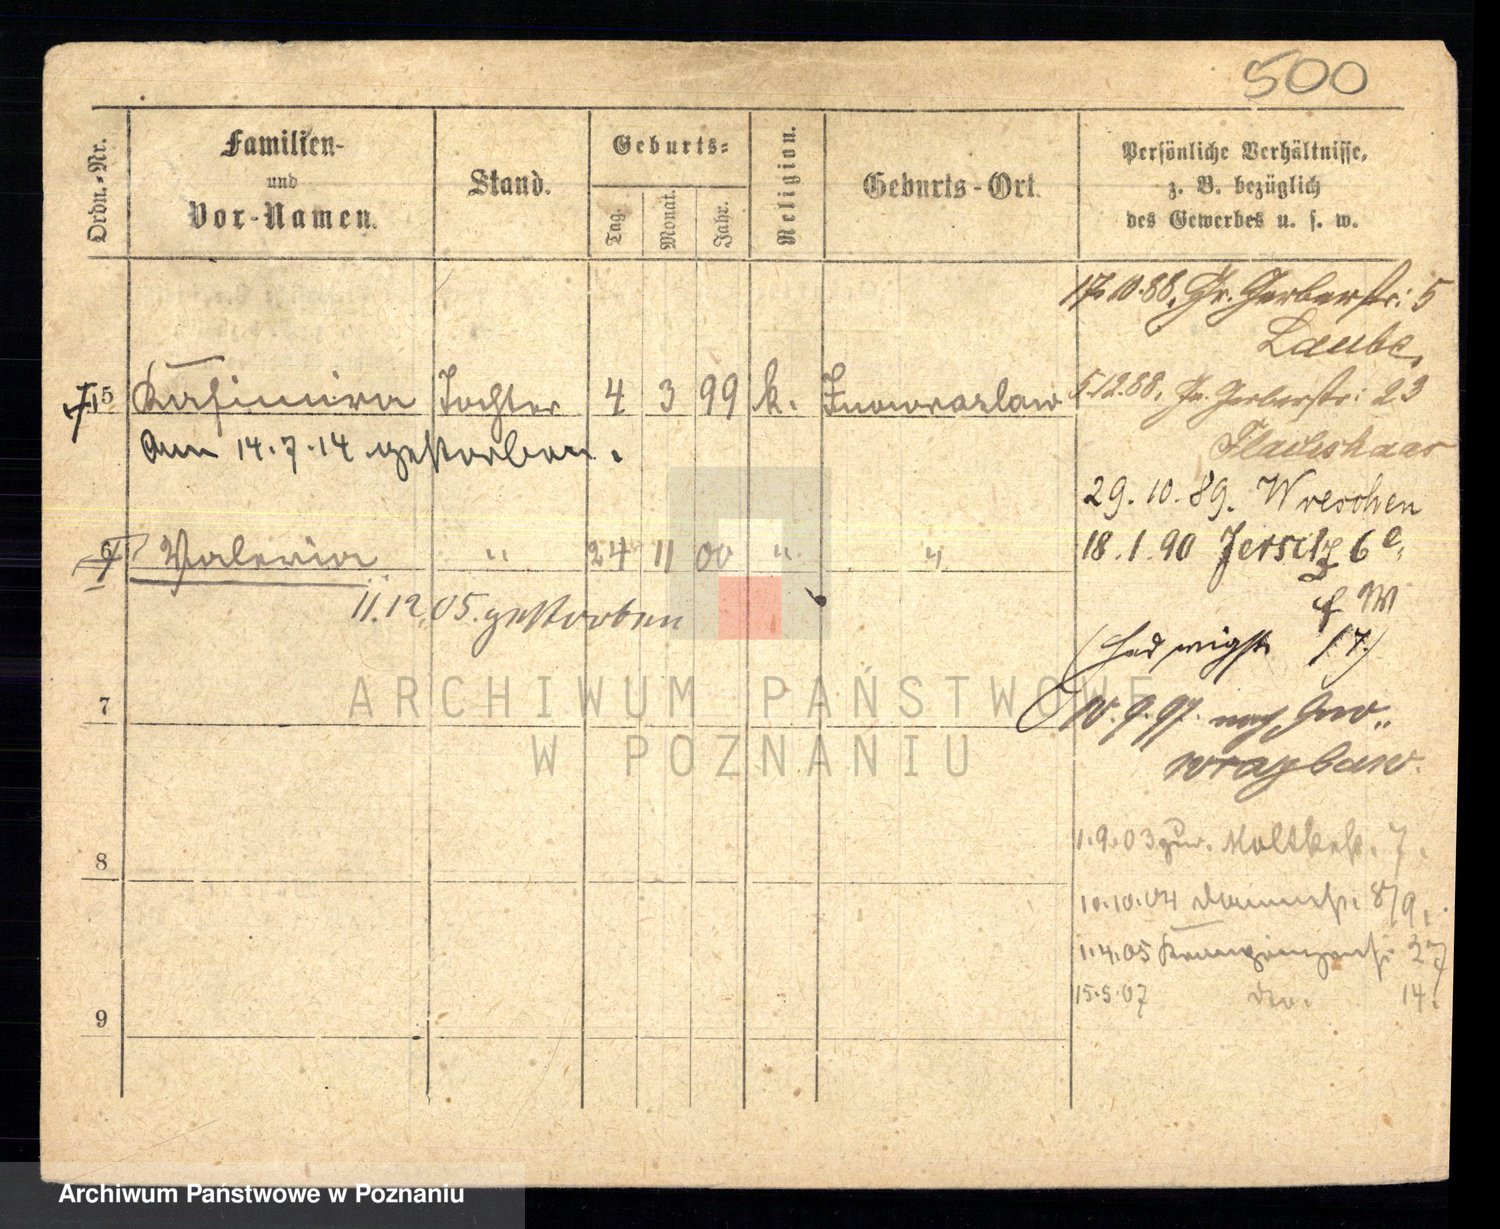 500
Ordn.-Nr.
Familien-
und
Vor-Namen.
Stand.
Geburts-
Tag.
Monat.
Jahr.
Religion.
Geburts-Ort.
Persönliche Verhältnisse,
z. B. bezüglich
des Gewerbes u. s. w.
17.10.88. Gr. Gerberstr: 5
Laube,
5 Kasimira Tochter 4 3 99 k. Inowrazlaw
5.12.88. Gr. Gerberstr: 23
am 14.7.14 gestorben.
Flachshaar
29. 10. 89. Wreschen
6 Valeria " 24 11 00 " "
18. 1. 90 Jersitz 6e,
11.12.05. gestorben
(Hedwigstr 17)
7
10.9.97. nach Ino-
wrazlaw.
ARCHIWUM PAŃSTWOWE
W POZNANIU
8
1.9.03 zur. Moltkestr. 7.
10.10.04 8/9.
1.4.05 Kronprinzenstr. 27
15.5.07 do. 14.
9
Archiwum Państwowe w Poznaniu